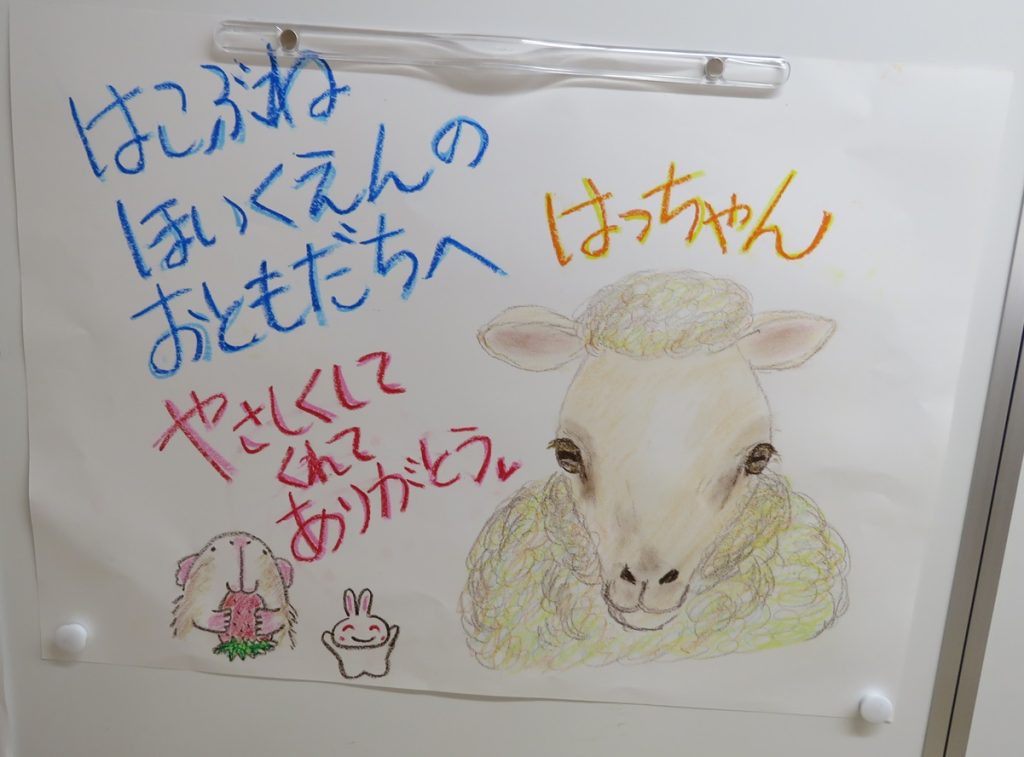 はこぶね
ほいくえんの
おともだちへ
やさしくして
くれて
ありがとう
はっちゃん